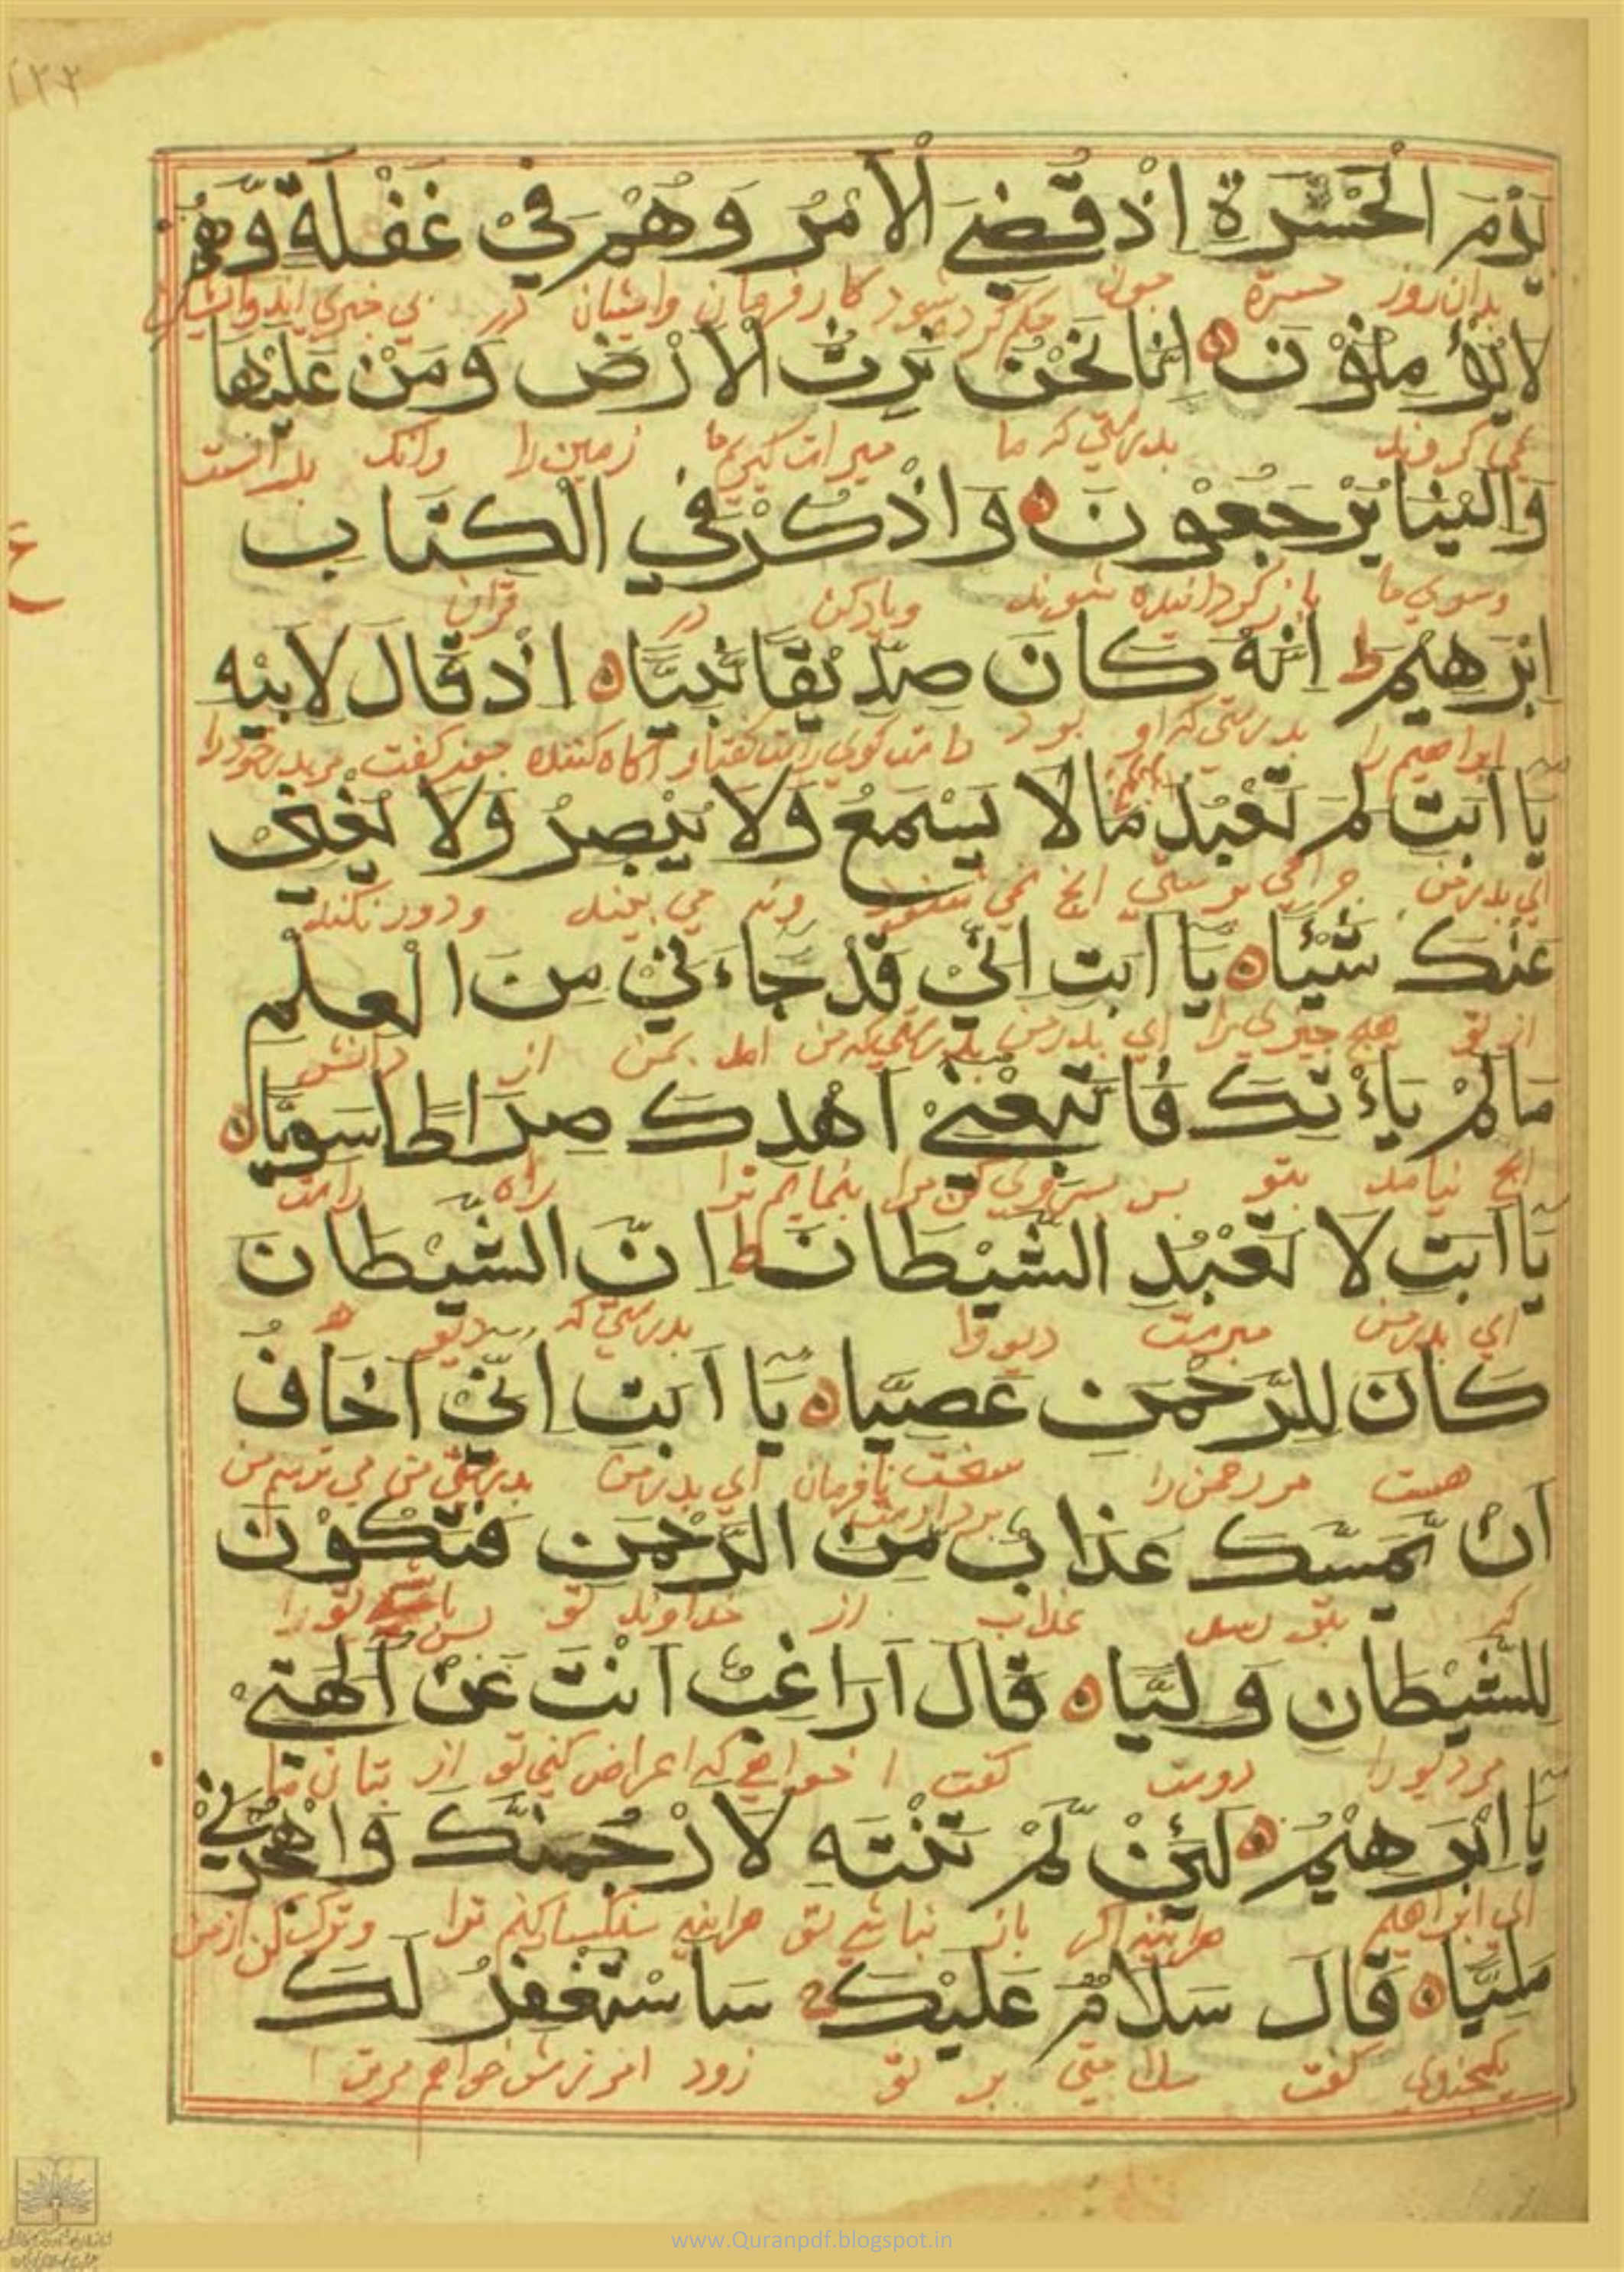 يَوْمَ الْحَسْرَةِ اِذْ قُضِيَ الْاَمْرُ وَهُمْ فِيْ غَفْلَةٍ وَّهُمْ
بدان روز حسرة چون حكم كرده شود كار فرمان وايشان در بي خبري اند وايشان
لَا يُؤْمِنُوْنَ اِنَّا نَحْنُ نَرِثُ الْاَرْضَ وَمَنْ عَلَيْهَا
نمي كروند بدرستي كه ما ميراث كيريم ما زمين را وانك بدانست
وَاِلَيْنَا يُرْجَعُوْنَ وَاذْكُرْ فِي الْكِتَابِ
وسوي ما باز كردانيده شوند وياد كن در قران
اِبْرَهِيْمَ ط اِنَّهُ كَانَ صِدِّيْقًا نَّبِيًّا اِذْ قَالَ لِاَبِيْهِ
ابراهيم را بدرستي كه او بود راست كوي راست كفتار اكاه كننده چون كفت مر پدر خود را
يَا اَبَتِ لِمَ تَعْبُدُ مَا لَا يَسْمَعُ وَلَا يُبْصِرُ وَلَا يُغْنِيْ
اي پدر من چرا مي پرستي انچ نمي شنود ونه مي بيند ودور نكند
عَنْكَ شَيْئًا يَا اَبَتِ اِنِّيْ قَدْ جَاءَنِيْ مِنَ الْعِلْمِ
از تو هيچ چيزي را اي پدر من بدرستي كه من امد بمن از دانش
مَا لَمْ يَاْتِكَ فَاتَّبِعْنِيْ اَهْدِكَ صِرَاطًا سَوِيًّا
انچ نيامد بتو پس پيروي كن مرا بنمايم ترا راه راست
يَا اَبَتِ لَا تَعْبُدِ الشَّيْطَانَ ط اِنَّ الشَّيْطَانَ
اي پدر من مپرست ديو را بدرستي كه ديو
كَانَ لِلرَّحْمَنِ عَصِيًّا يَا اَبَتِ اِنِّيْ اَخَافُ
هست مر رحمن را سخت نافرمان اي پدر من بدرستي من مي ترسم من
اَنْ يَّمَسَّكَ عَذَابٌ مِّنَ الرَّحْمَنِ فَتَكُوْنَ
كه بتو رسد عذاب از خداوند تو پس
لِلشَّيْطَانِ وَلِيًّا قَالَ اَرَاغِبٌ اَنْتَ عَنْ اٰلِهَتِيْ
مر ديو را دوست كفت ا خواهي كه اعراض كني تو از بتان ما
يَا اِبْرَهِيْمُ لَئِنْ لَّمْ تَنْتَهِ لَاَرْجُمَنَّكَ وَاهْجُرْنِيْ
اي ابراهيم هراينه اكر باز نباشي تو هراينه سنكسار كنم ترا وترك كن از من
مَلِيًّا قَالَ سَلَامٌ عَلَيْكَ سَاَسْتَغْفِرُ لَكَ
كفت سلامتي بر تو زود امرزش خواهم مر ترا
ع
www.Quranpdf.blogspot.in